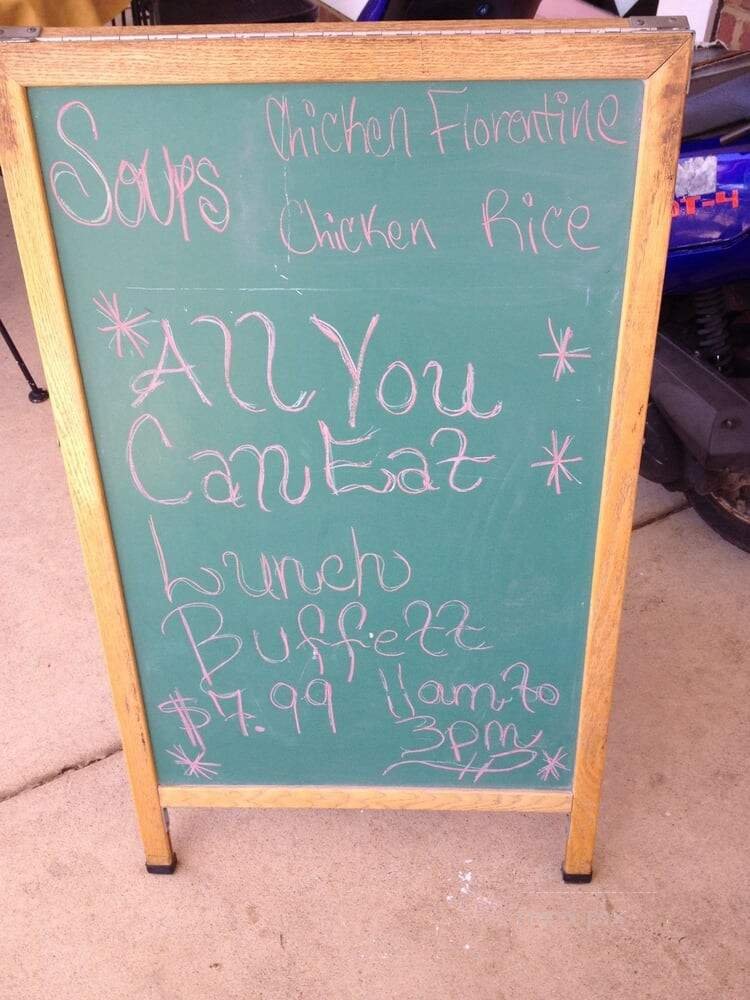 Soups Chicken Florentine
Chicken Rice
*All You *
Can Eat *
Lunch
Buffett
$7.99 11am to
3pm
* *
T-4